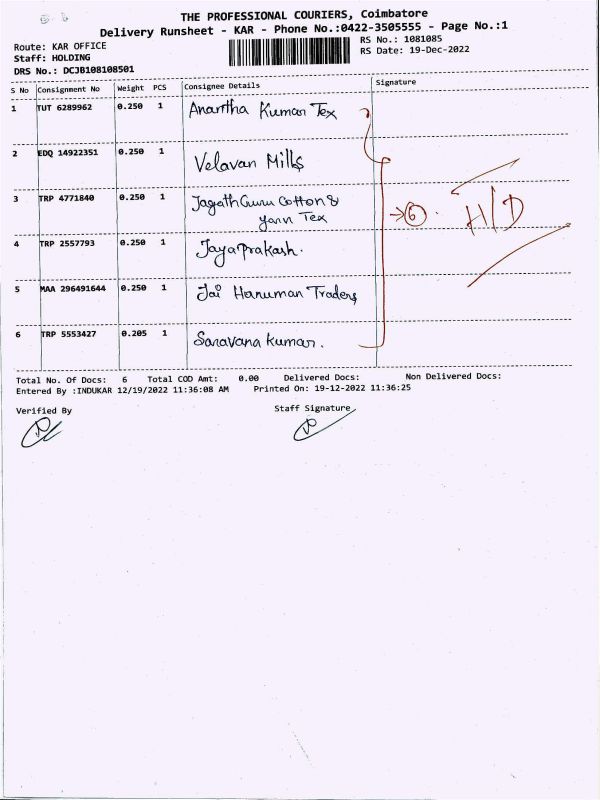 THE PROFESSIONAL COURIERS, Coimbatore
Delivery Runsheet - KAR - Phone No.:0422-3505555 - Page No.:1
Route: KAR OFFICE
RS No.: 1081085
Staff: HOLDING
RS Date: 19-Dec-2022
DRS No.: DCJB108108501
S No Consignment No Weight PCS Consignee Details Signature
1 TUT 6289962 0.250 1 Anantha Kumar Tex
2 EDQ 14922351 0.250 1 Velavan Mills
3 TRP 4771840 0.250 1 Jagath Guru Cotton &
yarn Tex
→ 6. H/D
4 TRP 2557793 0.250 1 Jayaprakash.
5 MAA 296491644 0.250 1 Jai Hanuman Traders
6 TRP 5553427 0.205 1 Saravana kumar.
Total No. Of Docs: 6 Total COD Amt: 0.00 Delivered Docs: Non Delivered Docs:
Entered By :INDUKAR 12/19/2022 11:36:08 AM Printed On: 19-12-2022 11:36:25
Verified By Staff Signature